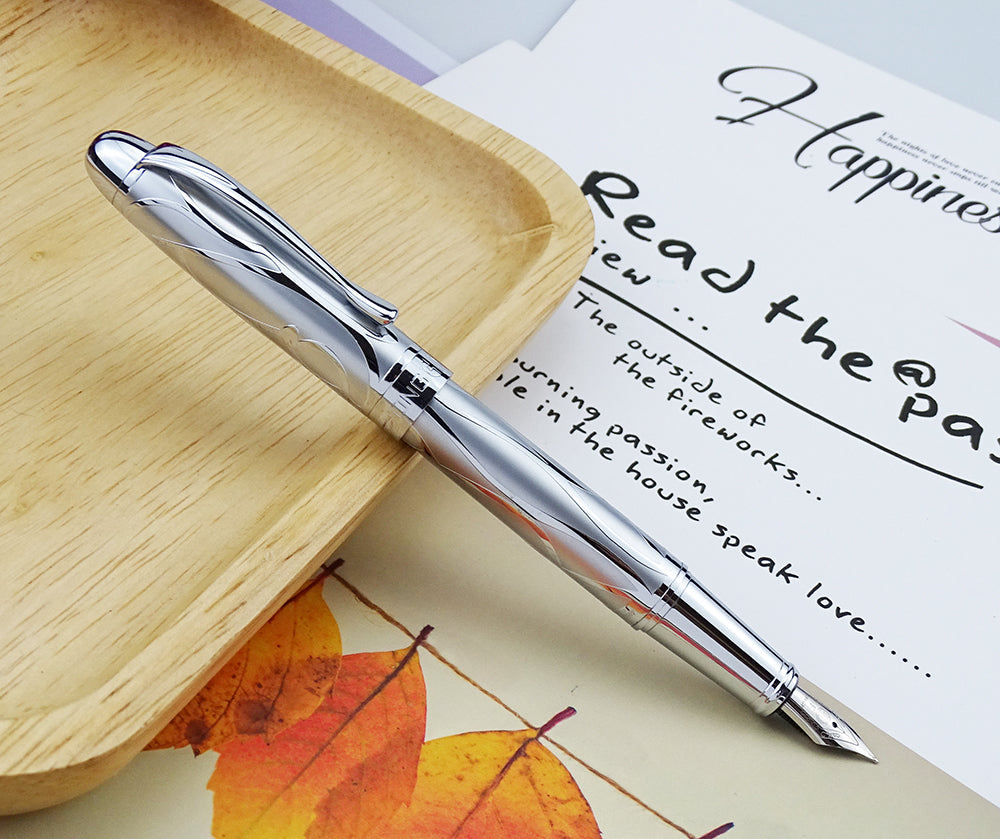 Happines
The nights of love never
happiness never stops till
Read the @
iew ...
pas
The outside of
the fireworks...
urning passion,
le in the house speak love......